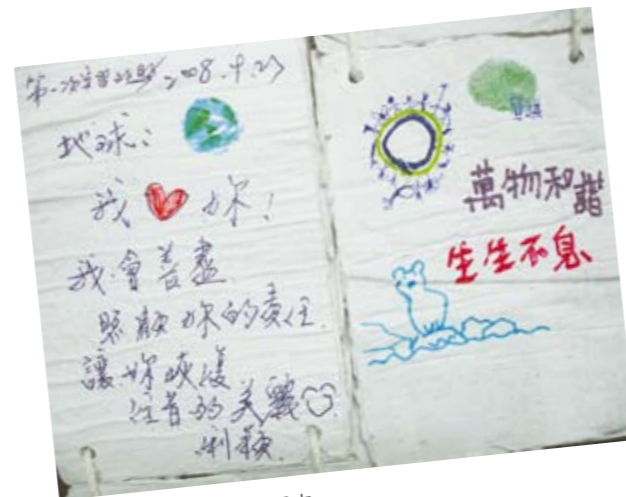 第一次 2008.9.23
地球：
我 妳！
我會善盡
照顧妳的責任
讓妳恢復
往昔的美麗
萬物和諧
生生不息